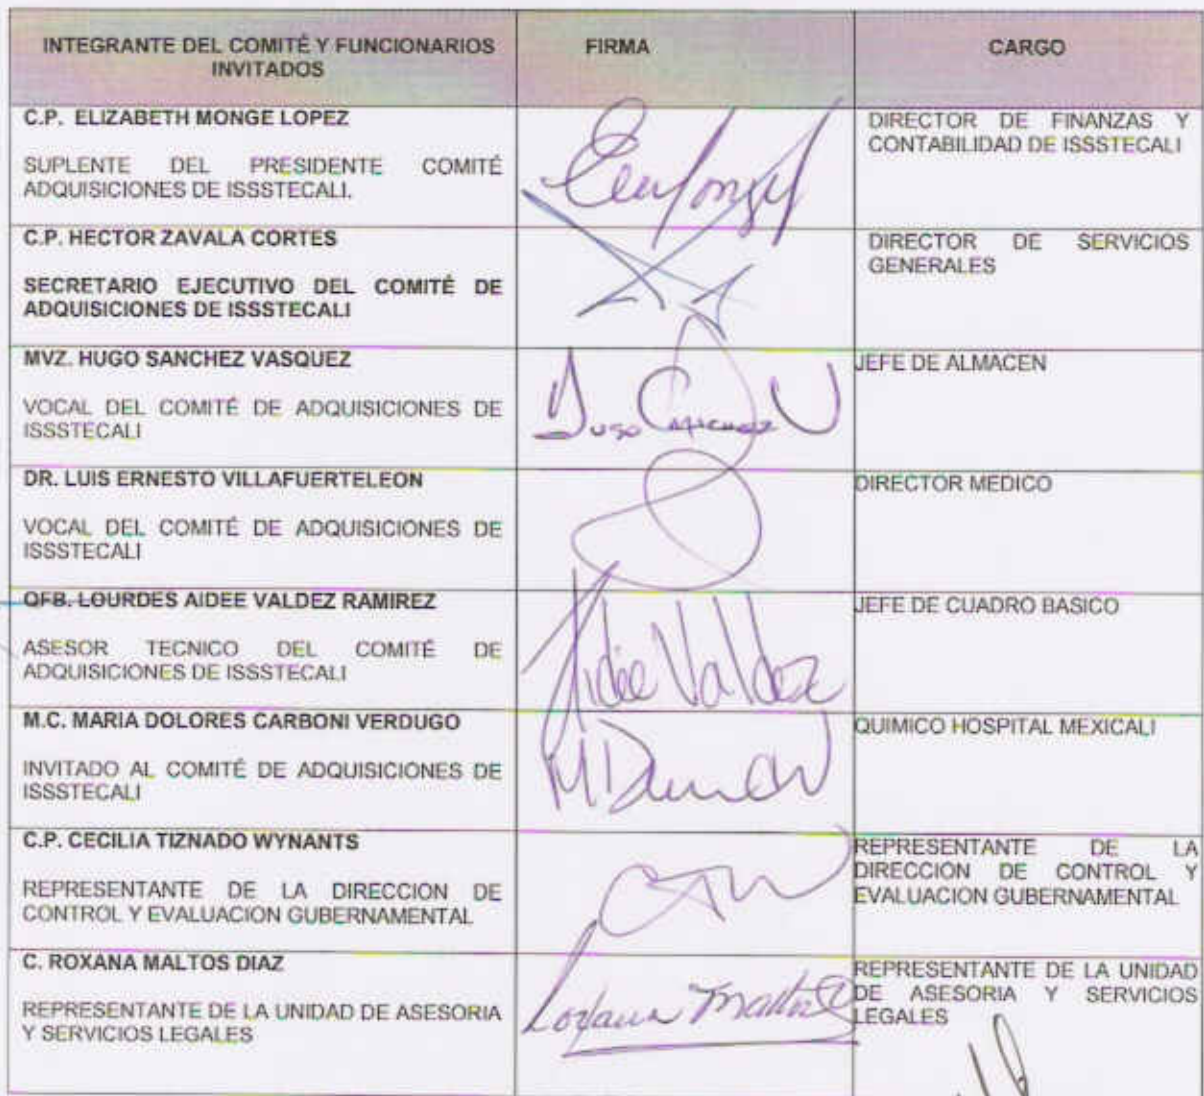 INTEGRANTE DEL COMITÉ Y FUNCIONARIOS
INVITADOS
FIRMA
CARGO
C.P. ELIZABETH MONGE LOPEZ
SUPLENTE DEL PRESIDENTE COMITÉ
ADQUISICIONES DE ISSSTECALI.
DIRECTOR DE FINANZAS Y
CONTABILIDAD DE ISSSTECALI
C.P. HECTOR ZAVALA CORTES
SECRETARIO EJECUTIVO DEL COMITÉ DE
ADQUISICIONES DE ISSSTECALI
DIRECTOR DE SERVICIOS
GENERALES
MVZ. HUGO SANCHEZ VASQUEZ
VOCAL DEL COMITÉ DE ADQUISICIONES DE
ISSSTECALI
JEFE DE ALMACEN
DR. LUIS ERNESTO VILLAFUERTELEON
VOCAL DEL COMITÉ DE ADQUISICIONES DE
ISSSTECALI
DIRECTOR MEDICO
QFB. LOURDES AIDEE VALDEZ RAMIREZ
ASESOR TECNICO DEL COMITÉ DE
ADQUISICIONES DE ISSSTECALI
Aidee Valdez
JEFE DE CUADRO BASICO
M.C. MARIA DOLORES CARBONI VERDUGO
INVITADO AL COMITÉ DE ADQUISICIONES DE
ISSSTECALI
QUIMICO HOSPITAL MEXICALI
C.P. CECILIA TIZNADO WYNANTS
REPRESENTANTE DE LA DIRECCION DE
CONTROL Y EVALUACION GUBERNAMENTAL
REPRESENTANTE DE LA
DIRECCION DE CONTROL Y
EVALUACION GUBERNAMENTAL
C. ROXANA MALTOS DIAZ
REPRESENTANTE DE LA UNIDAD DE ASESORIA
Y SERVICIOS LEGALES
REPRESENTANTE DE LA UNIDAD
DE ASESORIA Y SERVICIOS
LEGALES